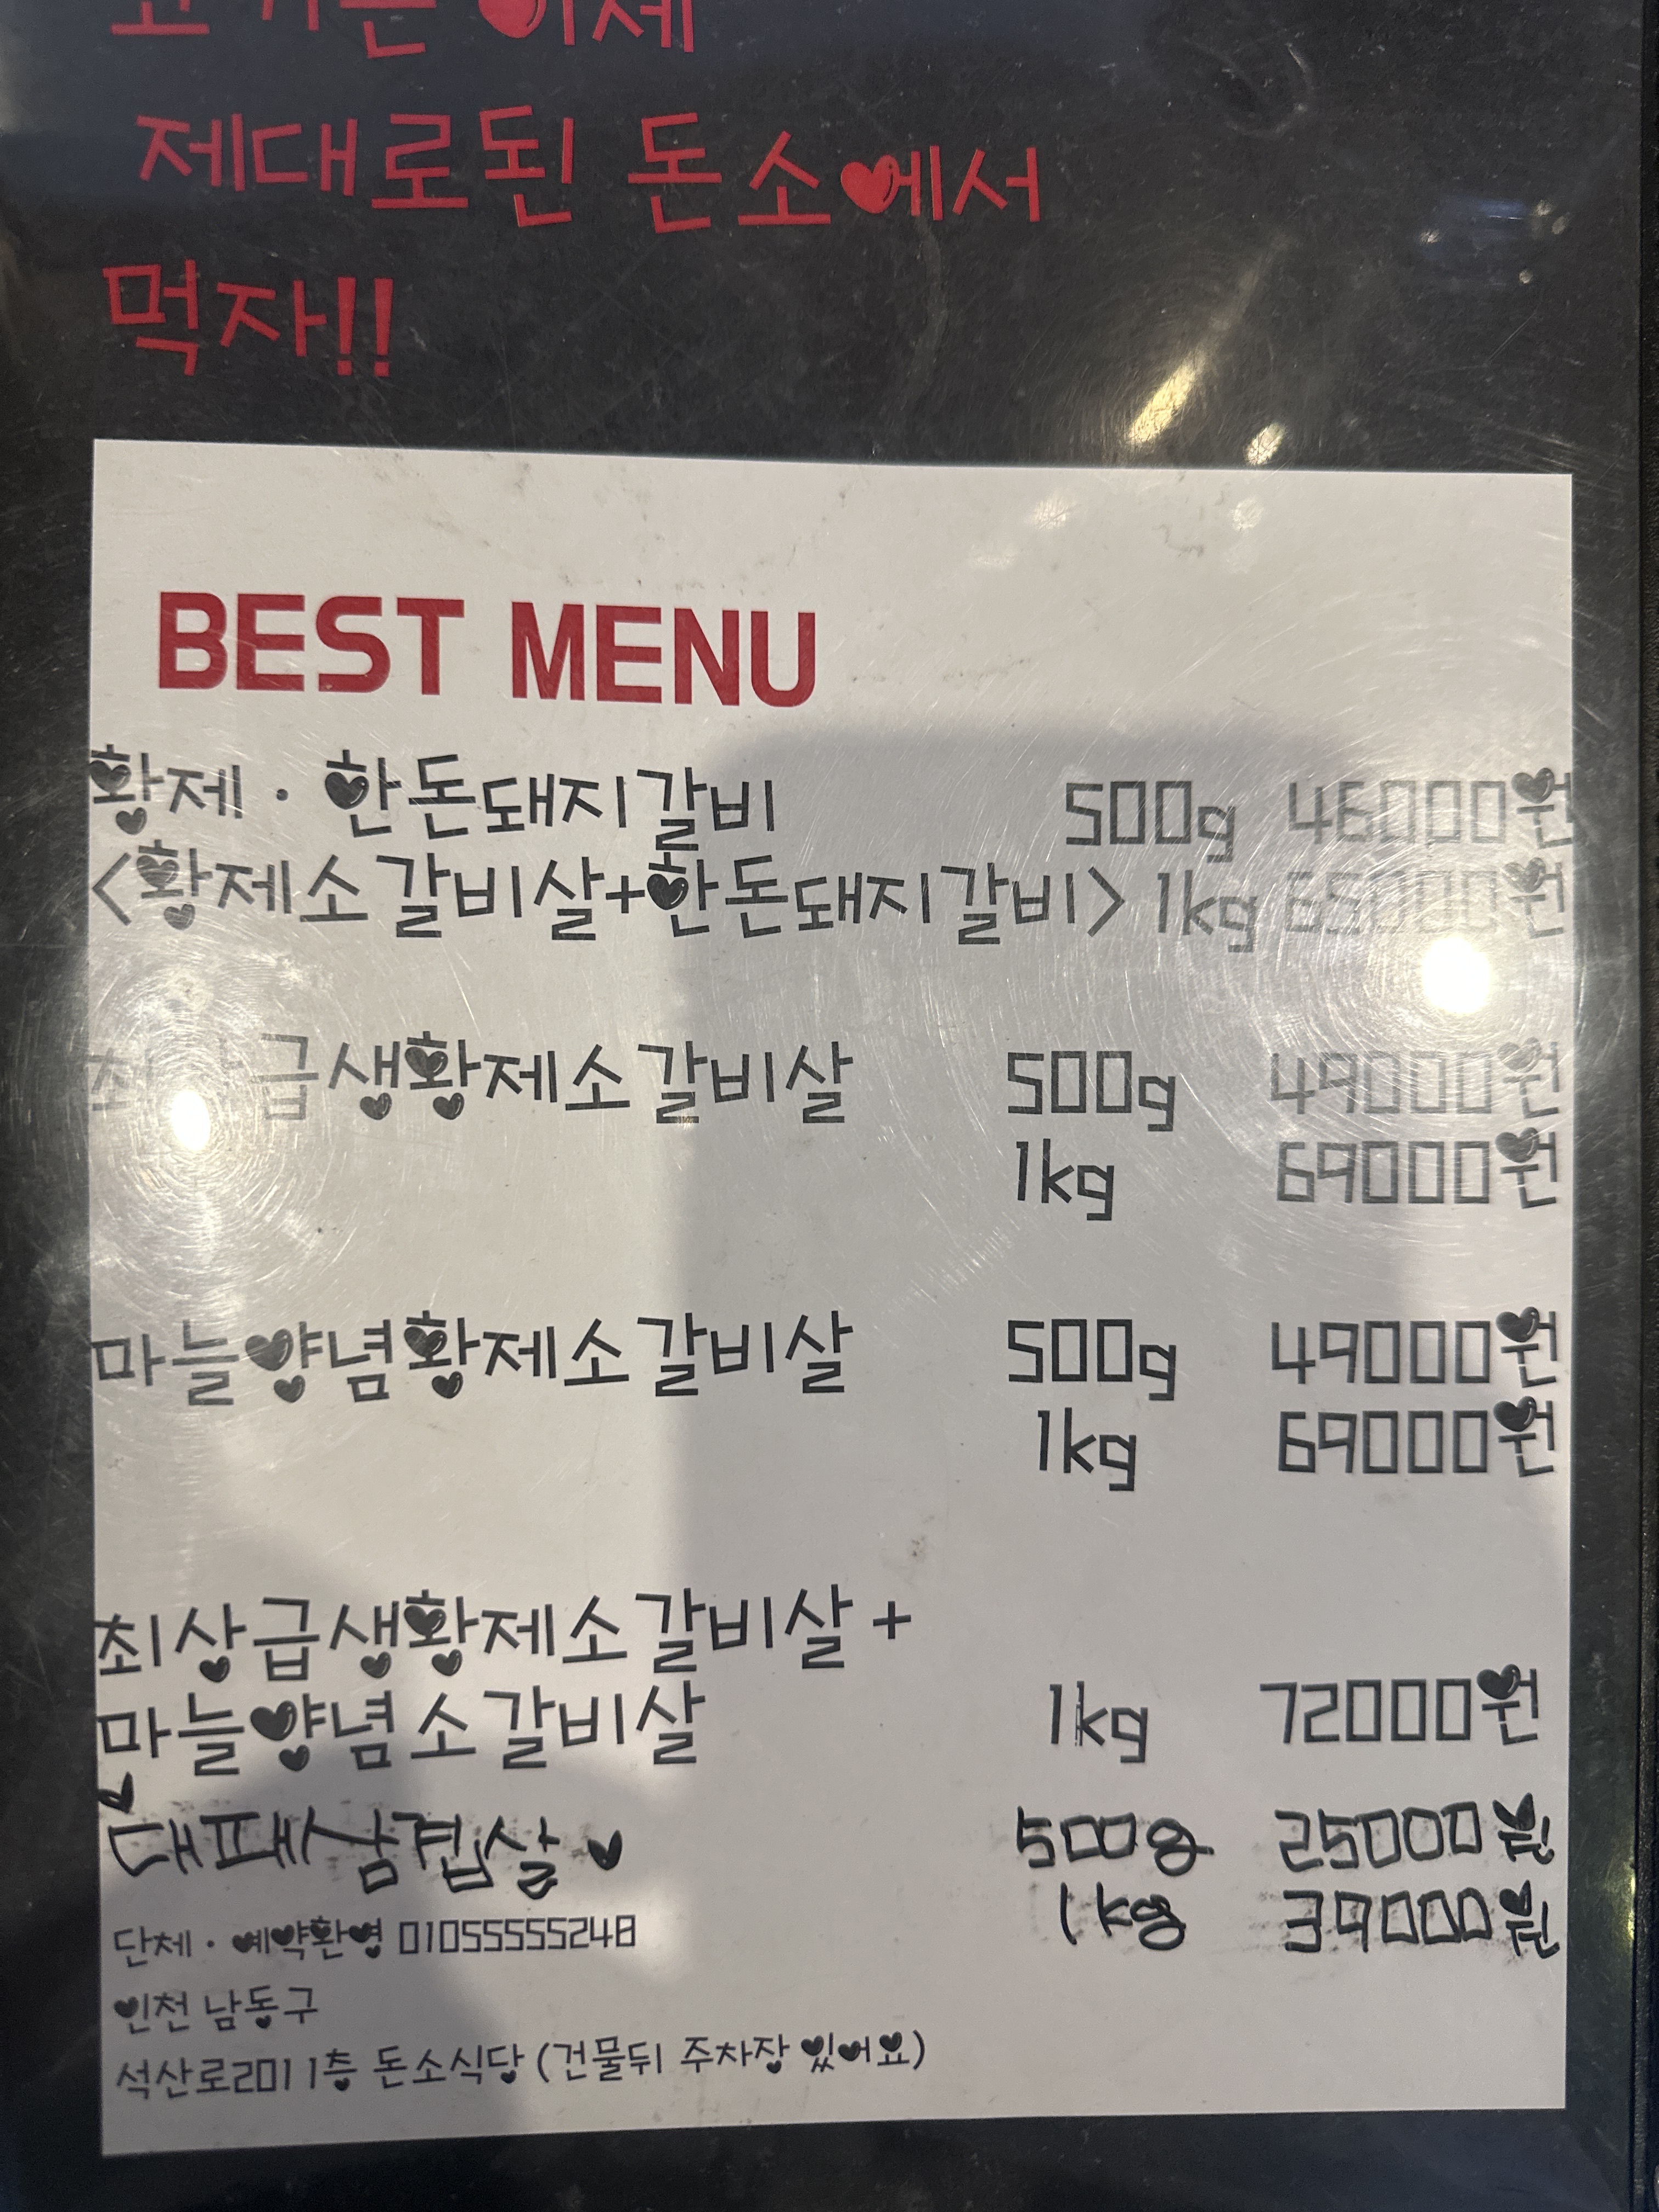 고기는 이제
제대로된 돈소에서
먹자!!
BEST MENU
황제·한돈돼지갈비 500g 46000원
<황제소갈비살+한돈돼지갈비> 1kg 65000원
최상급생황제소갈비살 500g 49000원
1kg 69000원
마늘양념황제소갈비살 500g 49000원
1kg 69000원
최상급생황제소갈비살+
마늘양념소갈비살 1kg 72000원
대패삼겹살 500g 25000원
1kg 39000원
단체·예약환영 01055555248
인천 남동구
석산로201 1층 돈소식당 (건물뒤 주차장 있어요)